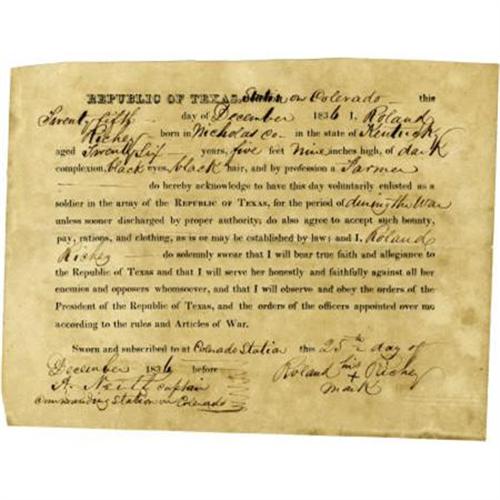 REPUBLIC OF TEXAS, Station on Colerado this
Twenty fifth day of December 1836 I, Roland
Richey born in Nicholas Co in the state of Kentucky
aged Twenty Six years, five feet nine inches high, of dark
complexion, black eyes, black hair, and by profession a Farmer
do hereby acknowledge to have this day voluntarily enlisted as a
soldier in the army of the REPUBLIC OF TEXAS, for the period of during the War
unless sooner discharged by proper authority; do also agree to accept such bounty,
pay, rations, and clothing, as is or may be established by law; and I, Roland
Richey do solemnly swear that I will bear true faith and allegiance to
the Republic of Texas and that I will serve her honestly and faithfully against all her
enemies and opposers whomsoever, and that I will observe and obey the orders of the
President of the Republic of Texas, and the orders of the officers appointed over me
according to the rules and Articles of War.
Sworn and subscribed to at Colorado Station this 25th day of
December 1836 before Roland his Richey
A. Captain + mark
Commanding Station on Colerado